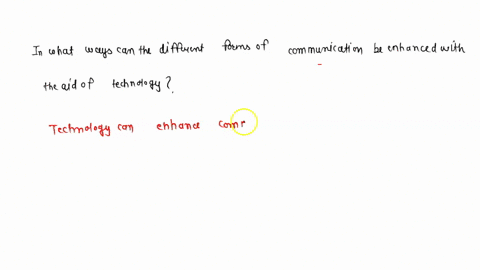 In what ways can the different forms of communication be enhanced with
the aid of technology?
Technology can enhance com